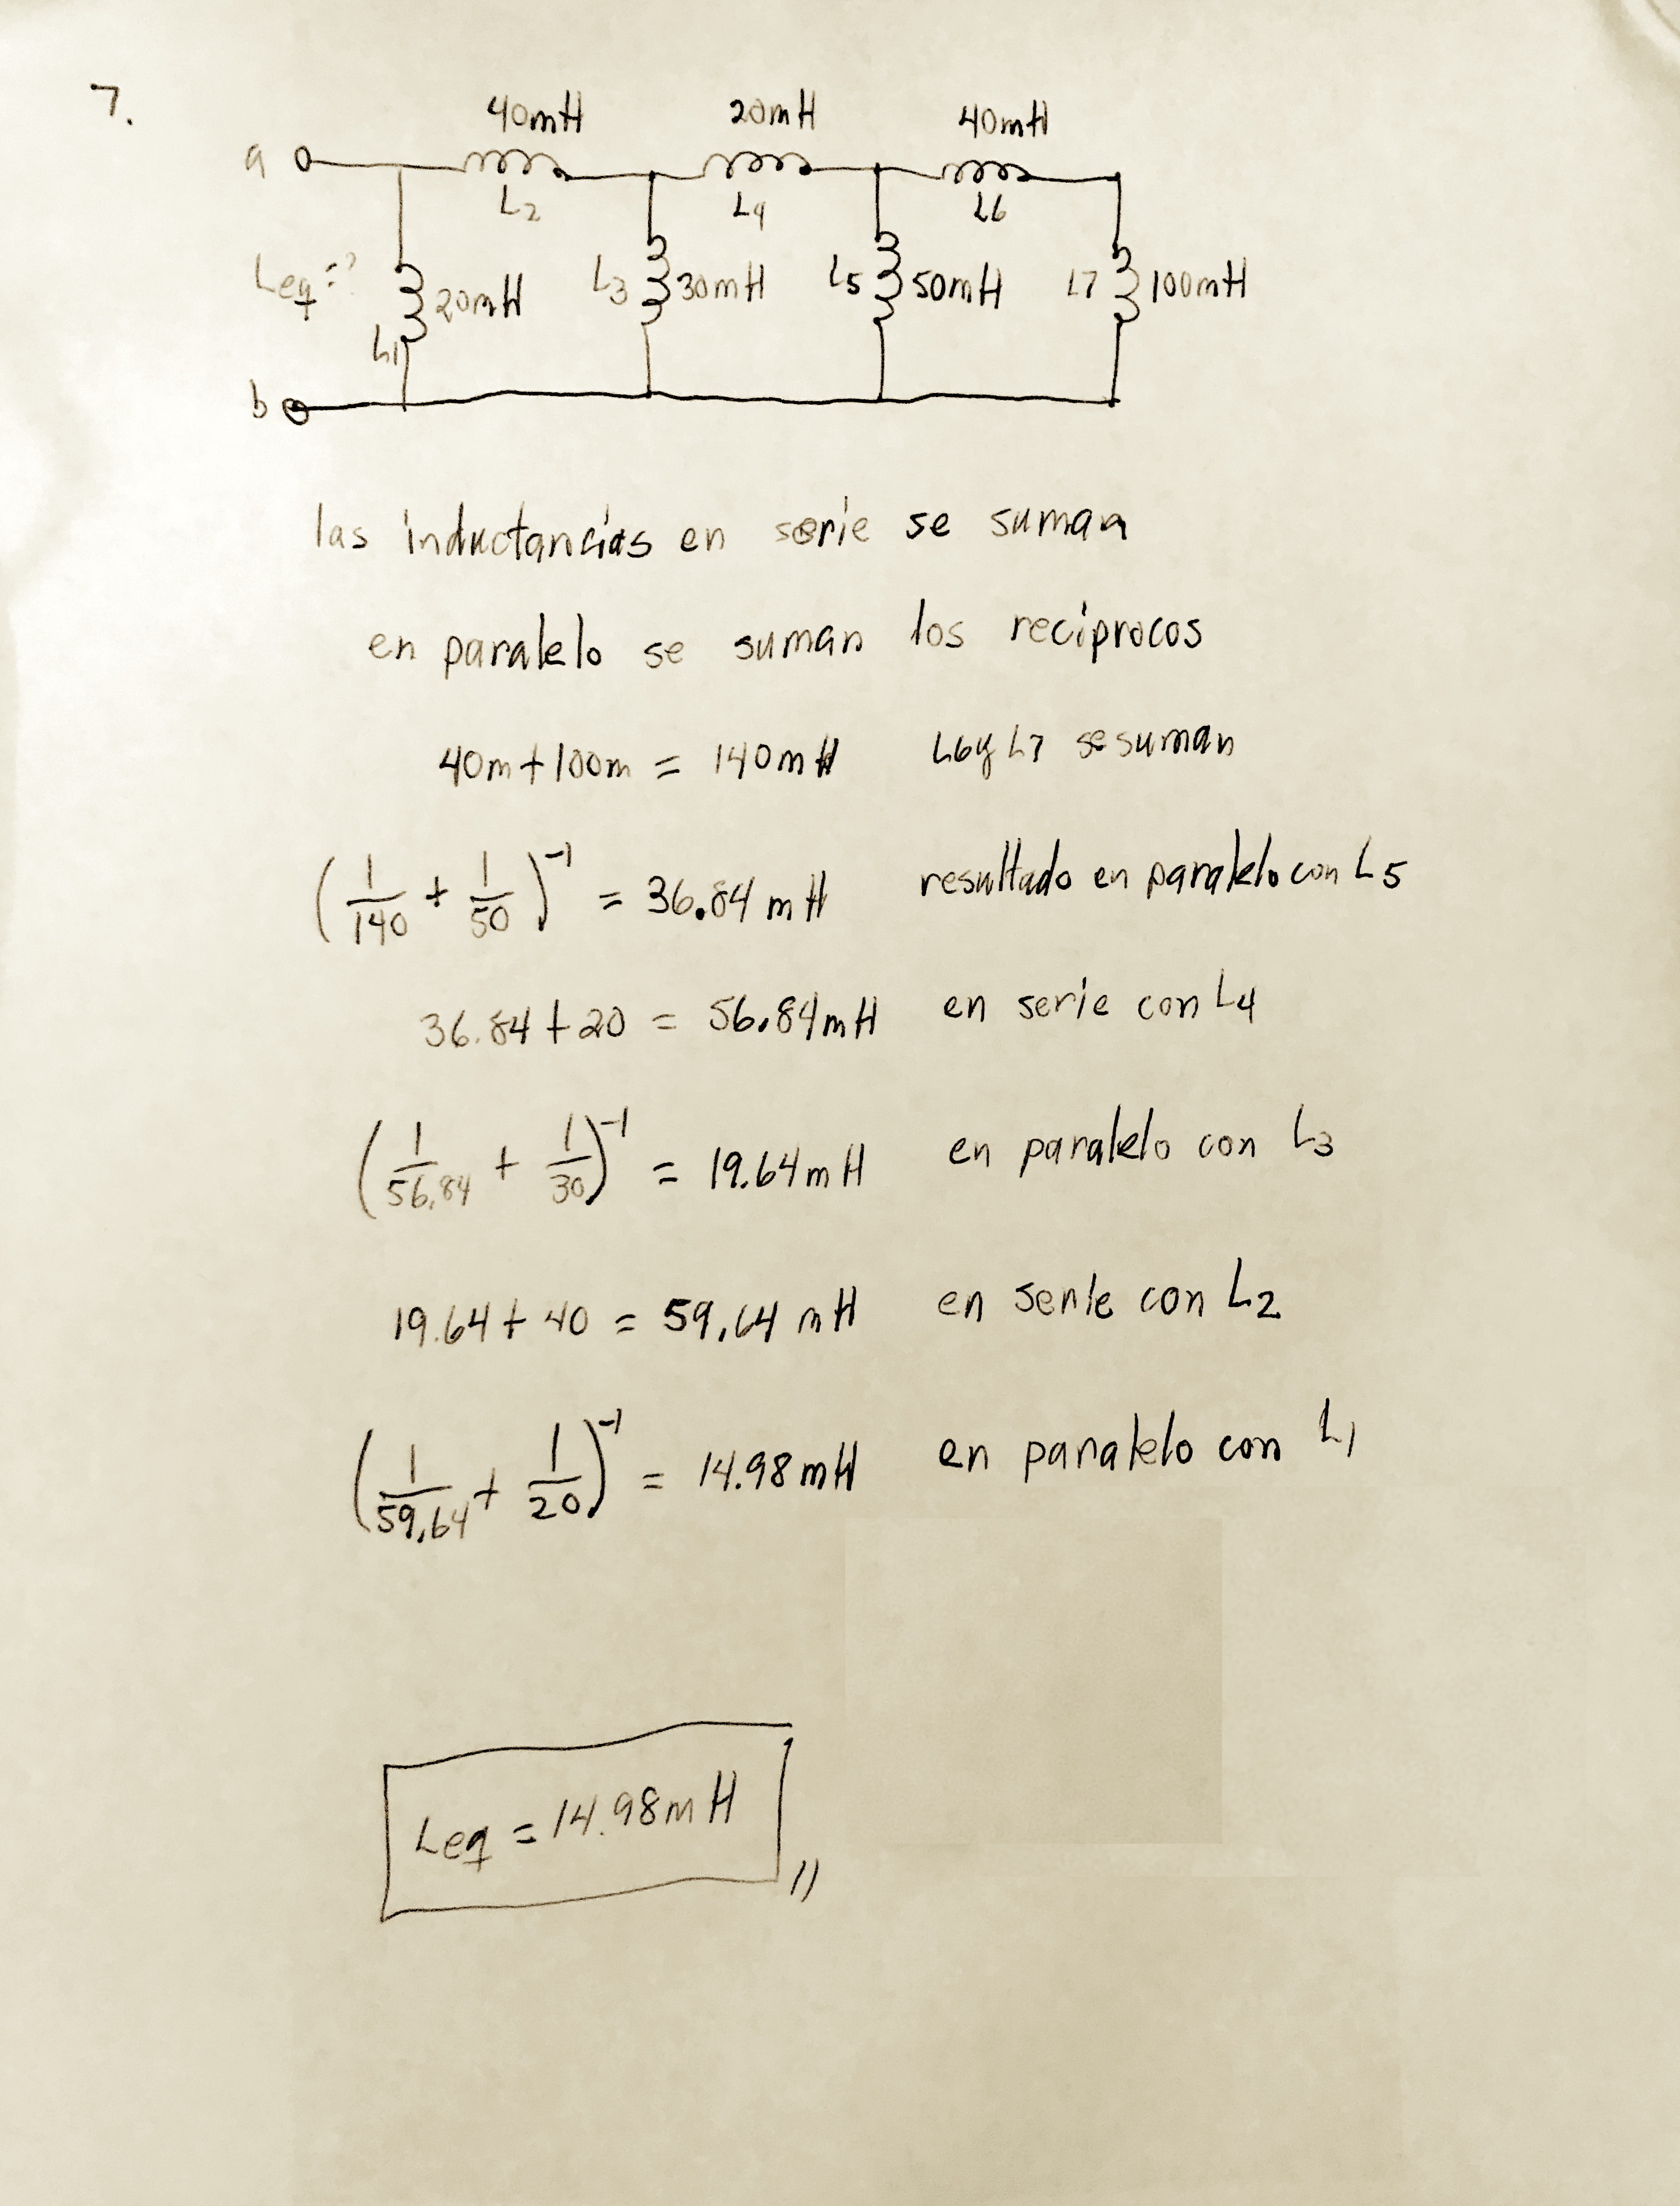 7.
40mH 20mH 40mH
a
L2 L4 L6
Leq=? 20mH L3 30mH L5 50mH L7 100mH
L1
b
las inductancias en serie se suman
en paralelo se suman los reciprocos
40m+100m = 140mH L6y L7 se suman
(1/140 + 1/50)^-1 = 36.84 mH resultado en paralelo con L5
36.84 + 20 = 56.84mH en serie con L4
(1/56.84 + 1/30)^-1 = 19.64mH en paralelo con L3
19.64 + 40 = 59.64 mH en serie con L2
(1/59.64 + 1/20)^-1 = 14.98mH en paralelo con L1
Leq = 14.98mH